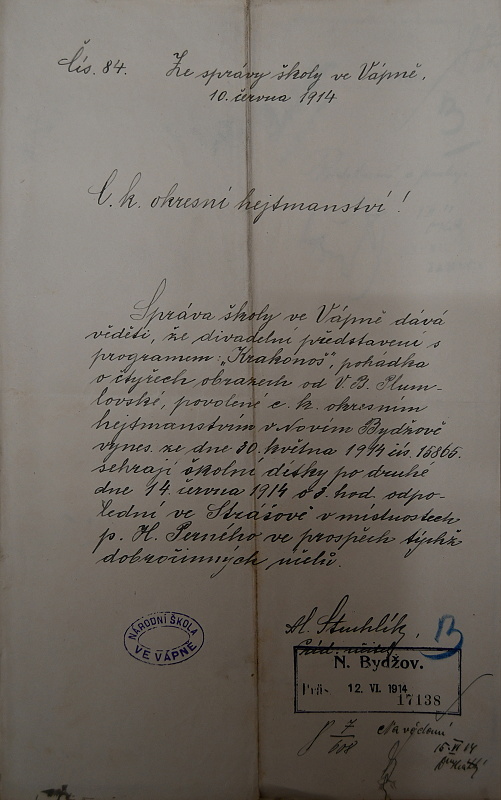 Čís. 84. Ze správy školy ve Vápně,
10. června 1914
C. k. okresní hejtmanství!
Správa školy ve Vápně dává
věděti, že divadelní představení s
programem: „Krakonoš", pohádka
o čtyřech obrazech od V. B. Plum-
lovské, povolené c. k. okresním
hejtmanstvím v Novém Bydžově
vynes. ze dne 30. května 1914 čís. 15865.
sehrají školní dítky po druhé
dne 14. června 1914 o 3. hod. odpo-
lední ve Strašově v místnostech
p. H. Perného ve prospěch týchž
dobročinných účelů.
NÁRODNÍ ŠKOLA
VE VÁPNĚ
Stuchlík,
N. Bydžov.
12. VI. 1914
17138
7
608
15 VI 14